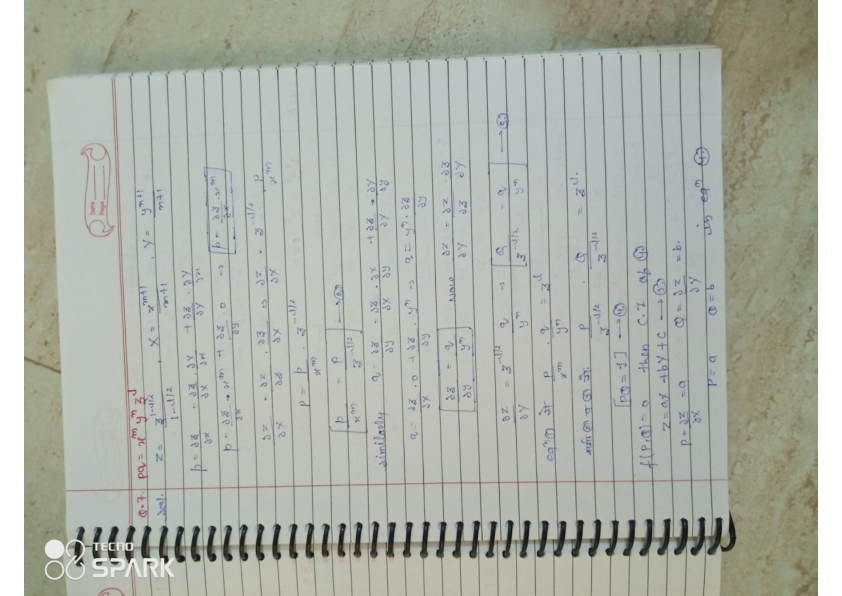 Date
Page
Q.7. pq = x^m y^n z^l
Sol. Z = z^(1-l/2) / (1-l/2) , X = x^(m+1) / (m+1) , Y = y^(n+1) / (n+1)
p = ∂z/∂x = ∂z/∂X · ∂X/∂x + ∂z/∂Y · ∂Y/∂x
p = ∂z/∂X · x^m + ∂z/∂Y · 0 ⇒ [p = ∂z/∂X · x^m]
∂Z/∂X = ∂Z/∂z · ∂z/∂X ⇒ ∂Z/∂X = z^(-l/2) · p/x^m
P = p/x^m · z^(-l/2)
[p/x^m = P/z^(-l/2)] → ②
Similarly q = ∂z/∂y = ∂z/∂X · ∂X/∂y + ∂z/∂Y · ∂Y/∂y
q = ∂z/∂X · 0 + ∂z/∂Y · y^n ⇒ q = y^n · ∂z/∂Y
[∂z/∂Y = q/y^n] Now ∂Z/∂Y = ∂Z/∂z · ∂z/∂Y
∂Z/∂Y = z^(-l/2) q/y^n ⇒ [Q/z^(-l/2) = q/y^n] → ③
eqⁿ ① से p/x^m · q/y^n = z^l
समी② व ③ से P/z^(-l/2) · Q/z^(-l/2) = z^l
[PQ = 1] → ④
f(P,Q) = 0 then C.I of ④
Z = aX + bY + C → ⑤
P = ∂Z/∂X = a Q = ∂Z/∂Y = b.
P = a Q = b eqⁿ ④
TECNO
SPARK